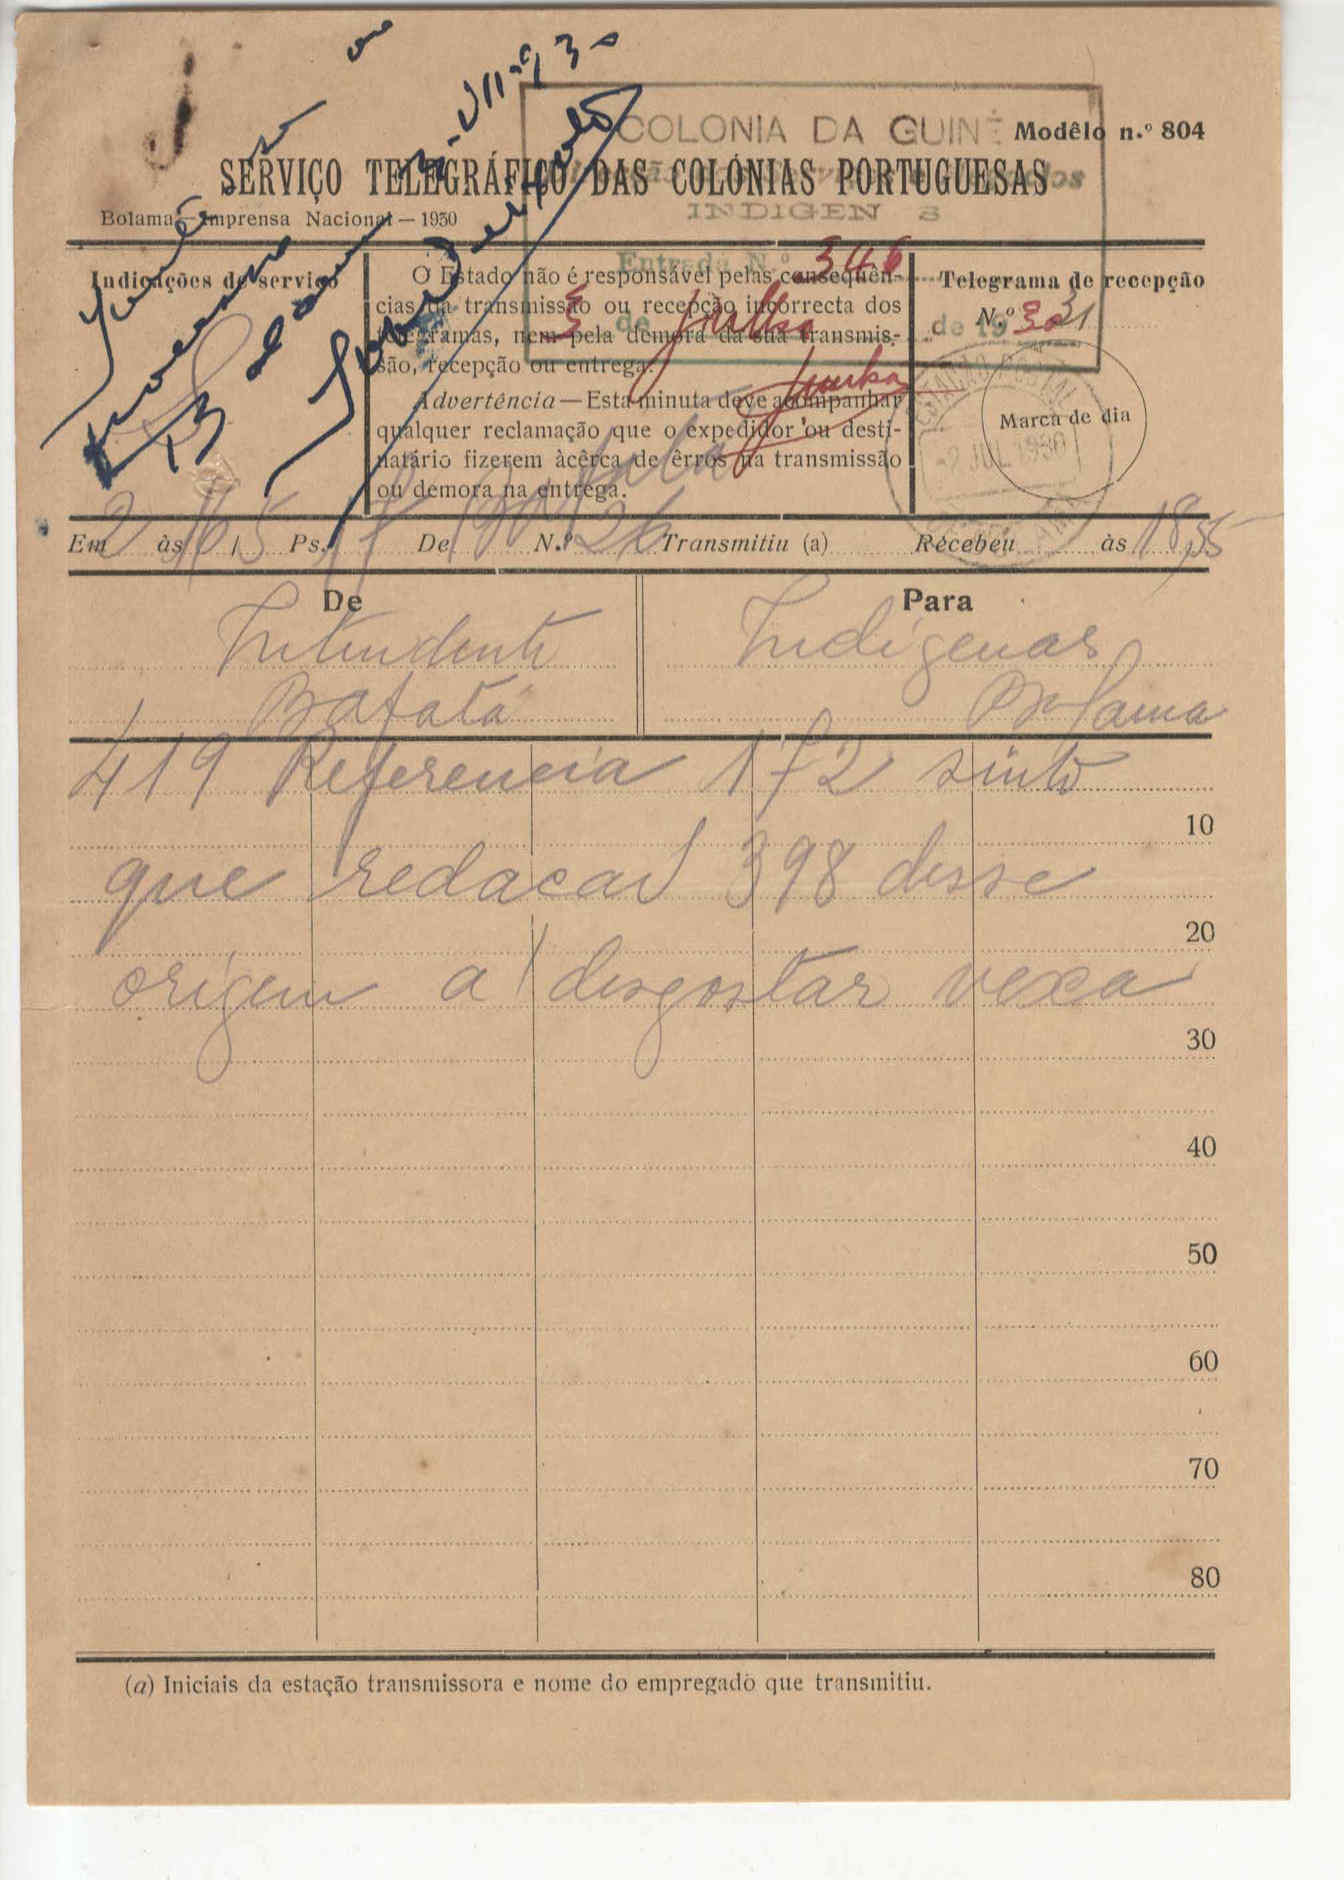 COLONIA DA GUINÉ
Modêlo n.º 804
SERVIÇO TELEGRÁFICO DAS COLÓNIAS PORTUGUESAS
INDIGEN S
Bolama — Imprensa Nacional — 1930
3-VII-930
Entrada N.º 346
3 de julho de 1930
Indicações de serviço
O Estado não é responsável pelas consequên-
cias da transmissão ou recepção incorrecta dos
telegramas, nem pela demora da sua transmis-
são, recepção ou entrega.
Advertência — Esta minuta deve acompanhar
qualquer reclamação que o expedidor ou desti-
natário fizerem àcêrca de êrros na transmissão
ou demora na entrega.
Telegrama de recepção
N.º 31
Marca de dia
ESTAÇÃO POSTAL
-2 JUL 1930
Em 2 às 165 Ps. 17 De Bafata N.º 126 Transmitiu (a) Recebeu às 18,55
De
Intendente
Bafata
Para
Indigenas
Bolama
419 Referencia 172 sinto
que redacao 398 desse
origem a desgostar vexa
10
20
30
40
50
60
70
80
(a) Iniciais da estação transmissora e nome do empregado que transmitiu.